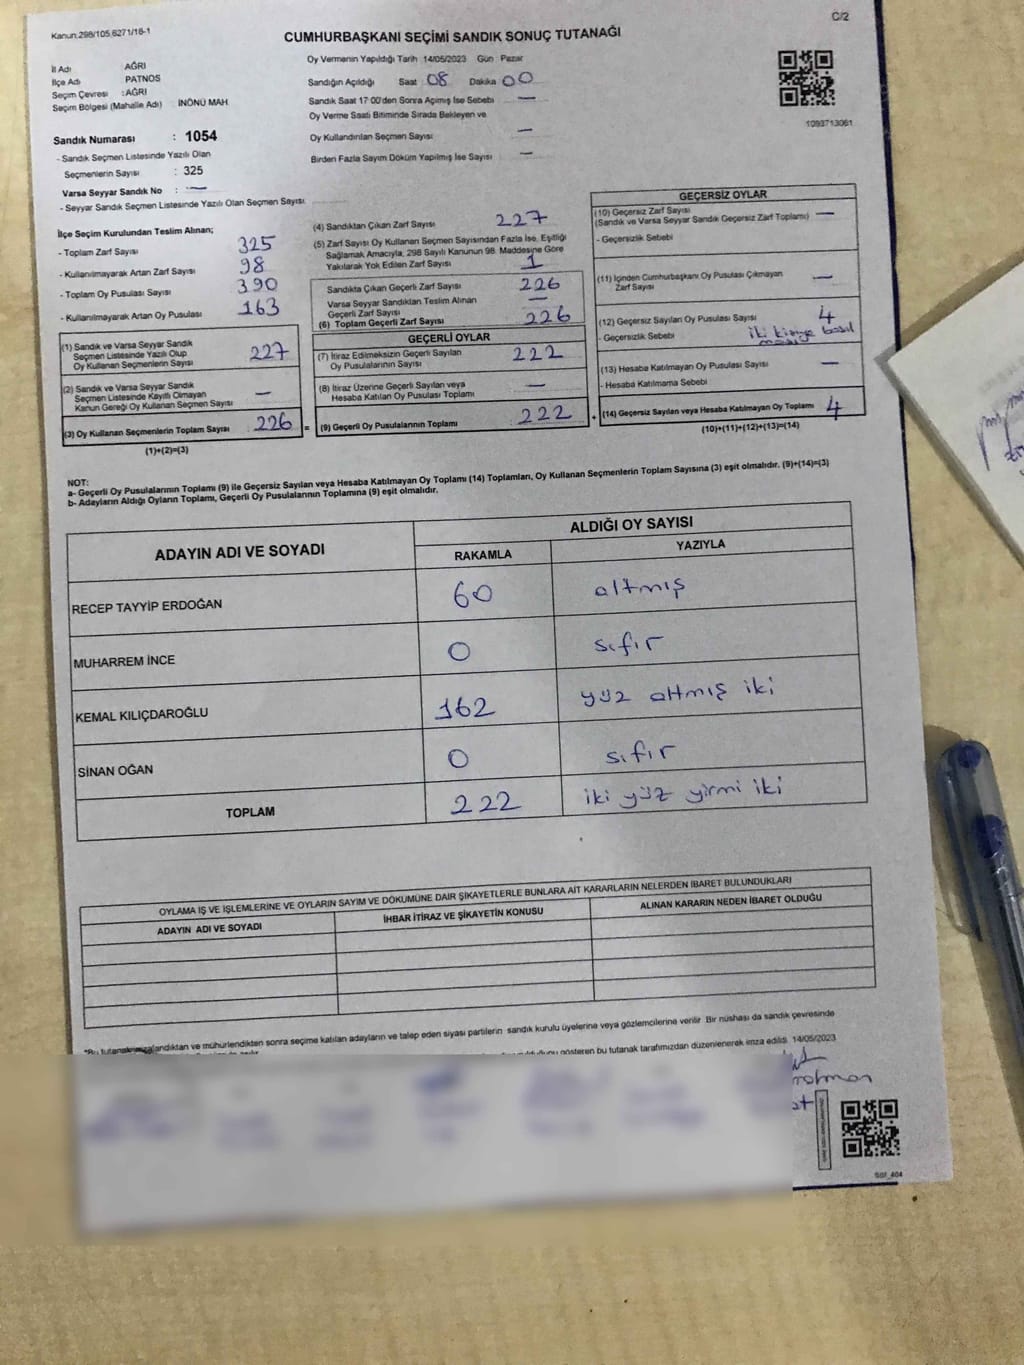 Kanun:298/105,6271/16-1
C/2
CUMHURBAŞKANI SEÇİMİ SANDIK SONUÇ TUTANAĞI
İl Adı AĞRI
İlçe Adı PATNOS
Seçim Çevresi : AĞRI
Seçim Bölgesi (Mahalle Adı) İNÖNÜ MAH
Sandık Numarası : 1054
- Sandık Seçmen Listesinde Yazılı Olan
Seçmenlerin Sayısı : 325
Varsa Seyyar Sandık No : —
- Seyyar Sandık Seçmen Listesinde Yazılı Olan Seçmen Sayısı
Oy Vermenin Yapıldığı Tarih 14/05/2023 Gün Pazar
Sandığın Açıldığı Saat 08 Dakika 00
Sandık Saat 17 00'den Sonra Açımış İse Sebebi —
Oy Verme Saati Bitiminde Sırada Bekleyen ve
Oy Kullandırılan Seçmen Sayısı —
Birden Fazla Sayım Döküm Yapılmış İse Sayısı —
1093713061
İlçe Seçim Kurulundan Teslim Alınan;
- Toplam Zarf Sayısı 325
- Kullanılmayarak Artan Zarf Sayısı 98
- Toplam Oy Pusulası Sayısı 390
- Kullanılmayarak Artan Oy Pusulası 163
(1) Sandık ve Varsa Seyyar Sandık
Seçmen Listesinde Yazılı Olup
Oy Kullanan Seçmenlerin Sayısı 227
(2) Sandık ve Varsa Seyyar Sandık
Seçmen Listesinde Kayıtlı Olmayan
Kanun Gereği Oy Kullanan Seçmen Sayısı —
(3) Oy Kullanan Seçmenlerin Toplam Sayısı 226
(1)+(2)=(3)
=
(4) Sandıktan Çıkan Zarf Sayısı 227
(5) Zarf Sayısı Oy Kullanan Seçmen Sayısından Fazla İse, Eşitliği
Sağlamak Amacıyla, 298 Sayılı Kanunun 98. Maddesine Göre
Yakılarak Yok Edilen Zarf Sayısı 1
Sandıkta Çıkan Geçerli Zarf Sayısı 226
Varsa Seyyar Sandıktan Teslim Alınan
Geçerli Zarf Sayısı —
(6) Toplam Geçerli Zarf Sayısı 226
GEÇERLİ OYLAR
(7) İtiraz Edilmeksizin Geçerli Sayılan
Oy Pusulalarının Sayısı 222
(8) İtiraz Üzerine Geçerli Sayılan veya
Hesaba Katılan Oy Pusulası Toplamı —
(9) Geçerli Oy Pusulalarının Toplamı 222
+
GEÇERSİZ OYLAR
(10) Geçersiz Zarf Sayısı —
(Sandık ve Varsa Seyyar Sandık Geçersiz Zarf Toplamı)
- Geçersizlik Sebebi
(11) İçinden Cumhurbaşkanı Oy Pusulası Çıkmayan
Zarf Sayısı —
(12) Geçersiz Sayılan Oy Pusulası Sayısı 4
- Geçersizlik Sebebi iki kişiye basıl
(13) Hesaba Katılmayan Oy Pusulası Sayısı —
- Hesaba Katılmama Sebebi
(14) Geçersiz Sayılan veya Hesaba Katılmayan Oy Toplamı 4
(10)+(11)+(12)+(13)=(14)
NOT:
a- Geçerli Oy Pusulalarının Toplamı (9) ile Geçersiz Sayılan veya Hesaba Katılmayan Oy Toplamı (14) Toplamları, Oy Kullanan Seçmenlerin Toplam Sayısına (3) eşit olmalıdır. (9)+(14)=(3)
b- Adayların Aldığı Oyların Toplamı, Geçerli Oy Pusulalarının Toplamına (9) eşit olmalıdır.
ADAYIN ADI VE SOYADI
ALDIĞI OY SAYISI
RAKAMLA YAZIYLA
RECEP TAYYİP ERDOĞAN 60 altmış
MUHARREM İNCE 0 sıfır
KEMAL KILIÇDAROĞLU 162 yüz altmış iki
SİNAN OĞAN 0 sıfır
TOPLAM 222 iki yüz yirmi iki
OYLAMA İŞ VE İŞLEMLERİNE VE OYLARIN SAYIM VE DÖKÜMÜNE DAİR ŞİKAYETLERLE BUNLARA AİT KARARLARIN NELERDEN İBARET BULUNDUKLARI
ADAYIN ADI VE SOYADI
İHBAR İTİRAZ VE ŞİKAYETİN KONUSU
ALINAN KARARIN NEDEN İBARET OLDUĞU
*Bu tutanak imzalandıktan ve mühürlendikten sonra seçime katılan adayların ve talep eden siyasi partilerin sandık kurulu üyelerine veya gözlemcilerine verilir. Bir nüshası da sandık çevresinde
gösteren bu tutanak tarafımızdan düzenlenerek imza edildi. 14/05/2023